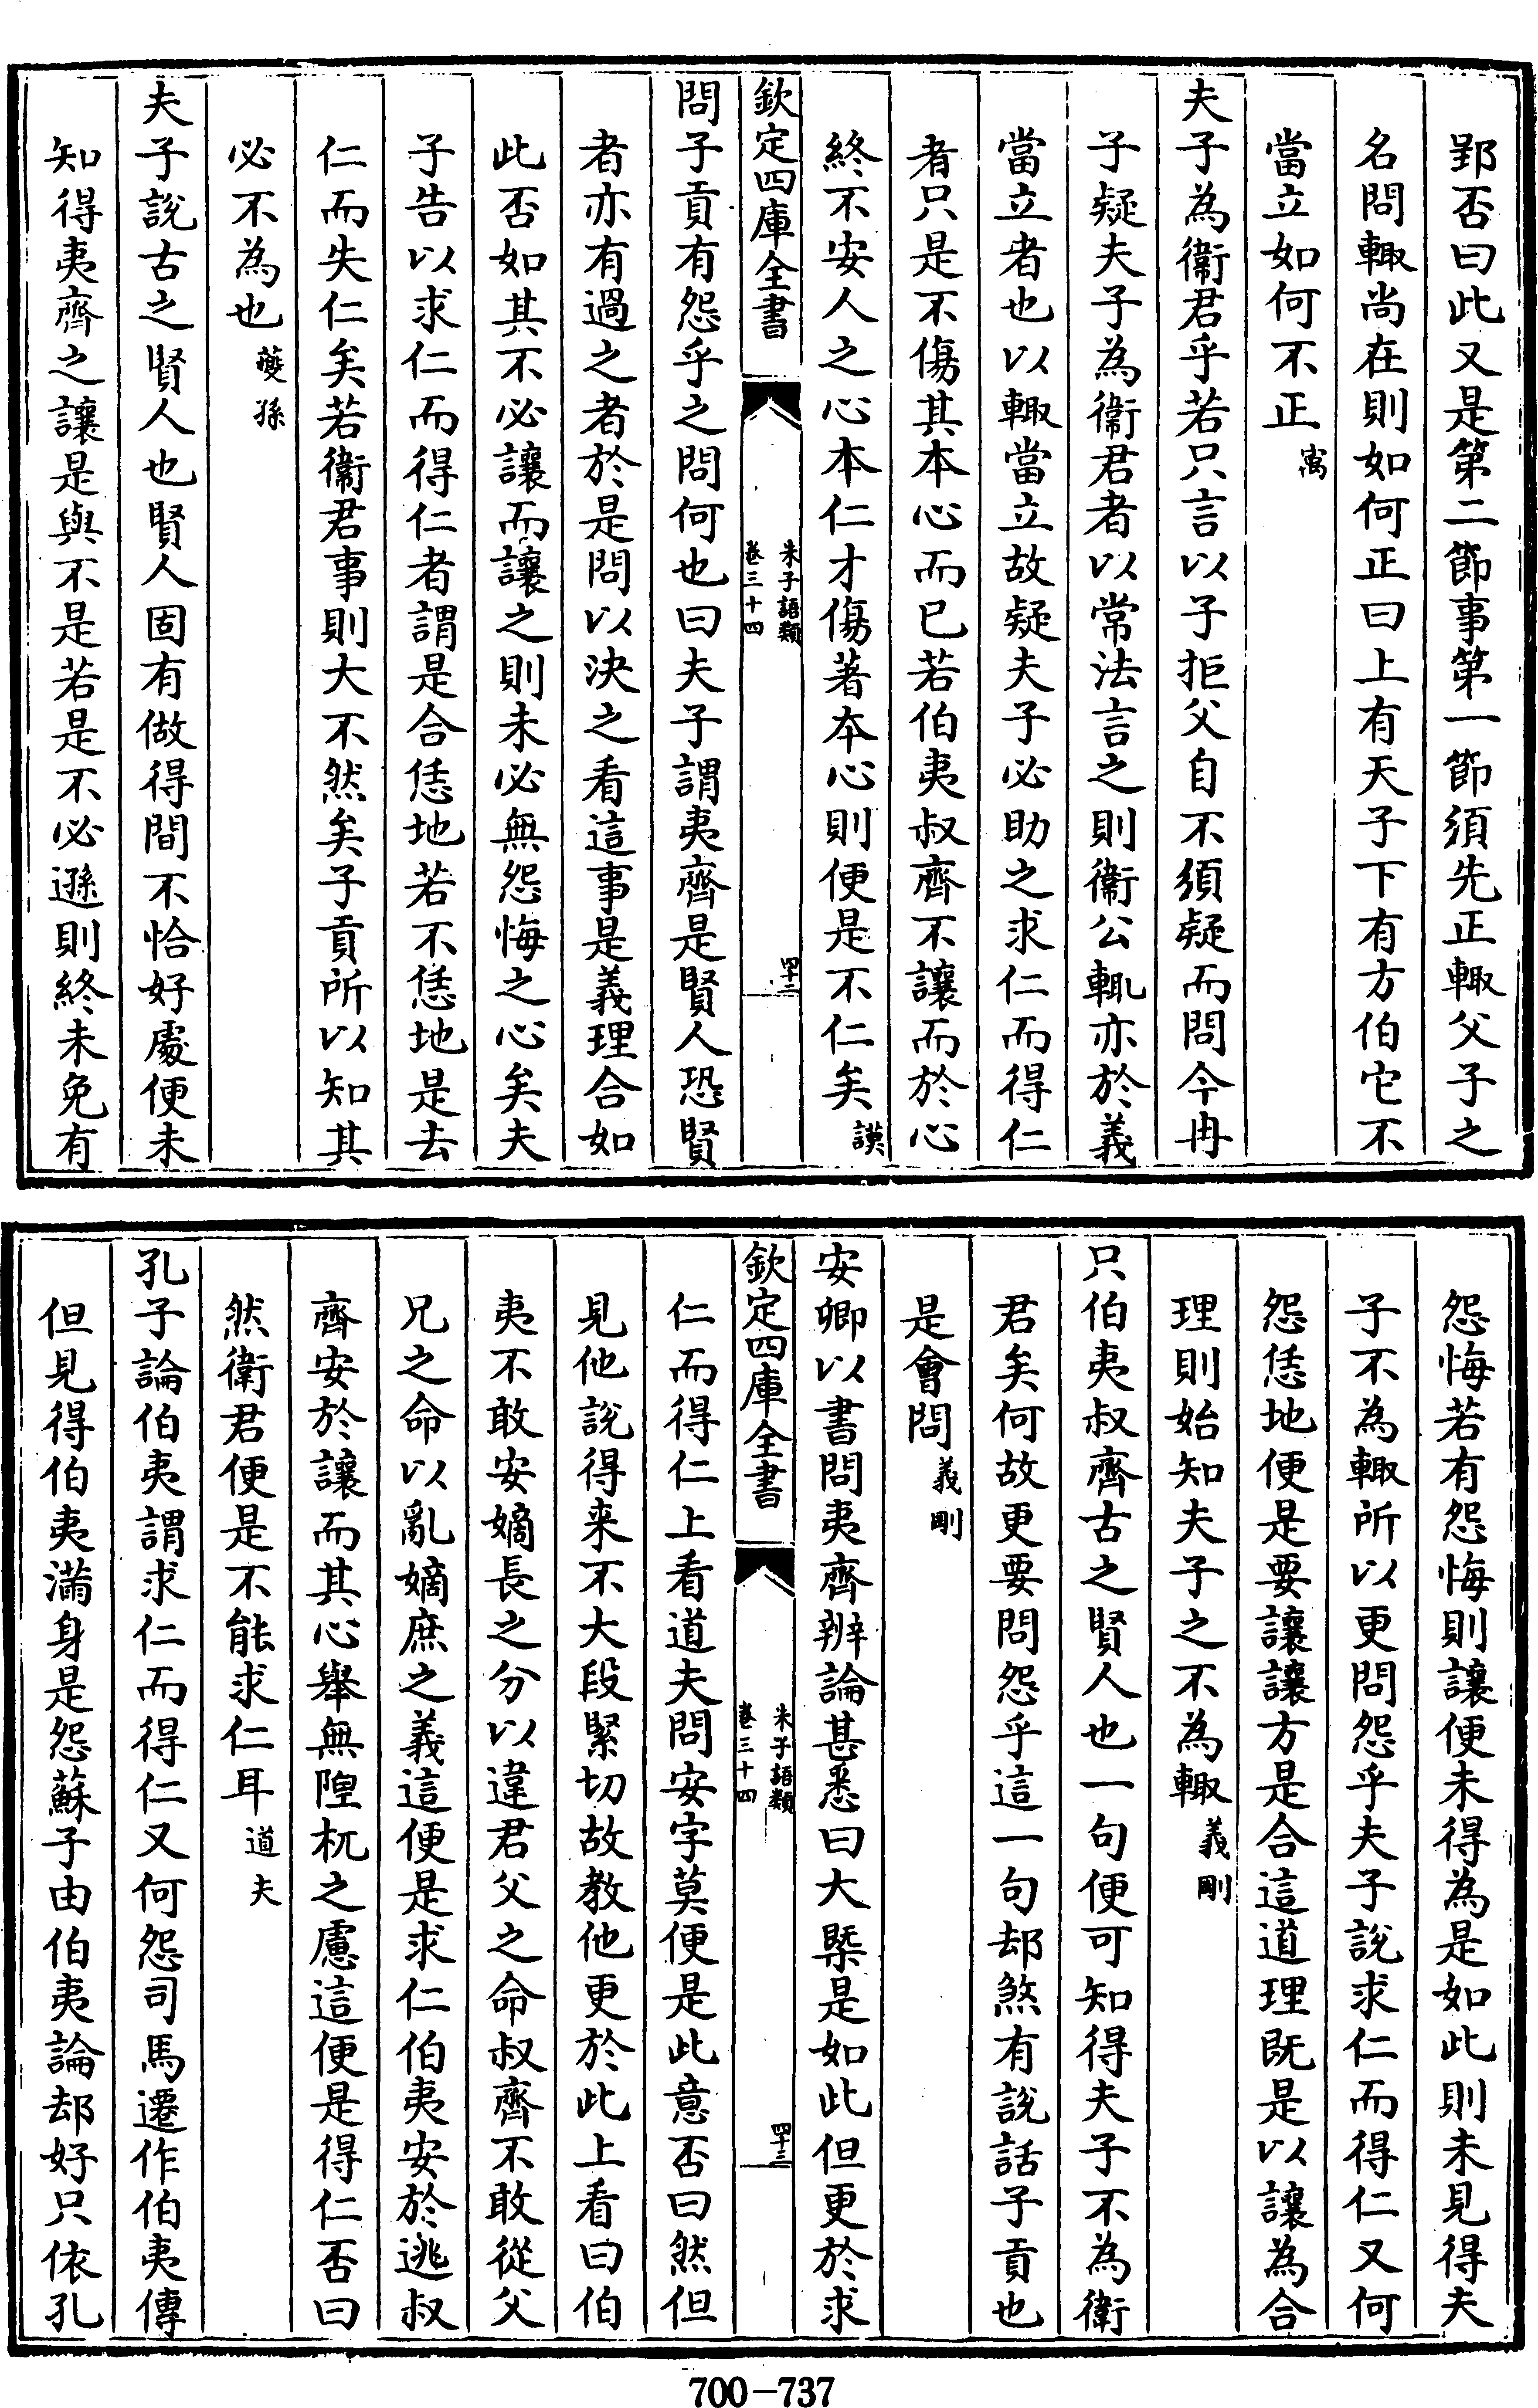 郢否曰此又是第二節事第一節須先正輙父子之
名問輙尚在則如何正曰上有天子下有方伯它不
當立如何不正㝢
夫子為衞君乎若只言以子拒父自不須疑而問今冉
子疑夫子為衞君者以常法言之則衞公輒亦於義
當立者也以輙當立故疑夫子必助之求仁而得仁
者只是不傷其本心而已若伯夷叔齊不讓而於心
終不安人之心本仁才傷著本心則便是不仁矣謨
欽定四庫全書
朱子語類
卷三十四
四十二
問子貢有怨乎之問何也曰夫子謂夷齊是賢人恐賢
者亦有過之者於是問以決之看這事是義理合如
此否如其不必讓而讓之則未必無怨悔之心矣夫
子告以求仁而得仁者謂是合恁地若不恁地是去
仁而失仁矣若衞君事則大不然矣子貢所以知其
必不為也夔孫
夫子說古之賢人也賢人固有做得間不恰好處便未
知得夷齊之讓是與不是若是不必遜則終未免有
怨悔若有怨悔則讓便未得為是如此則未見得夫
子不為輙所以更問怨乎夫子說求仁而得仁又何
怨恁地便是要讓讓方是合這道理既是以讓為合
理則始知夫子之不為輙義剛
只伯夷叔齊古之賢人也一句便可知得夫子不為衛
君矣何故更要問怨乎這一句却煞有說話子貢也
是會問義剛
安卿以書問夷齊辨論甚悉曰大槩是如此但更於求
欽定四庫全書
朱子語類
卷三十四
四十三
仁而得仁上看道夫問安字莫便是此意否曰然但
見他說得来不大段緊切故教他更於此上看曰伯
夷不敢安嫡長之分以違君父之命叔齊不敢從父
兄之命以亂嫡庶之義這便是求仁伯夷安於逃叔
齊安於讓而其心舉無隉杌之慮這便是得仁否曰
然衛君便是不能求仁耳道夫
孔子論伯夷謂求仁而得仁又何怨司馬遷作伯夷傳
但見得伯夷滿身是怨蘇子由伯夷論却好只依孔
700-737